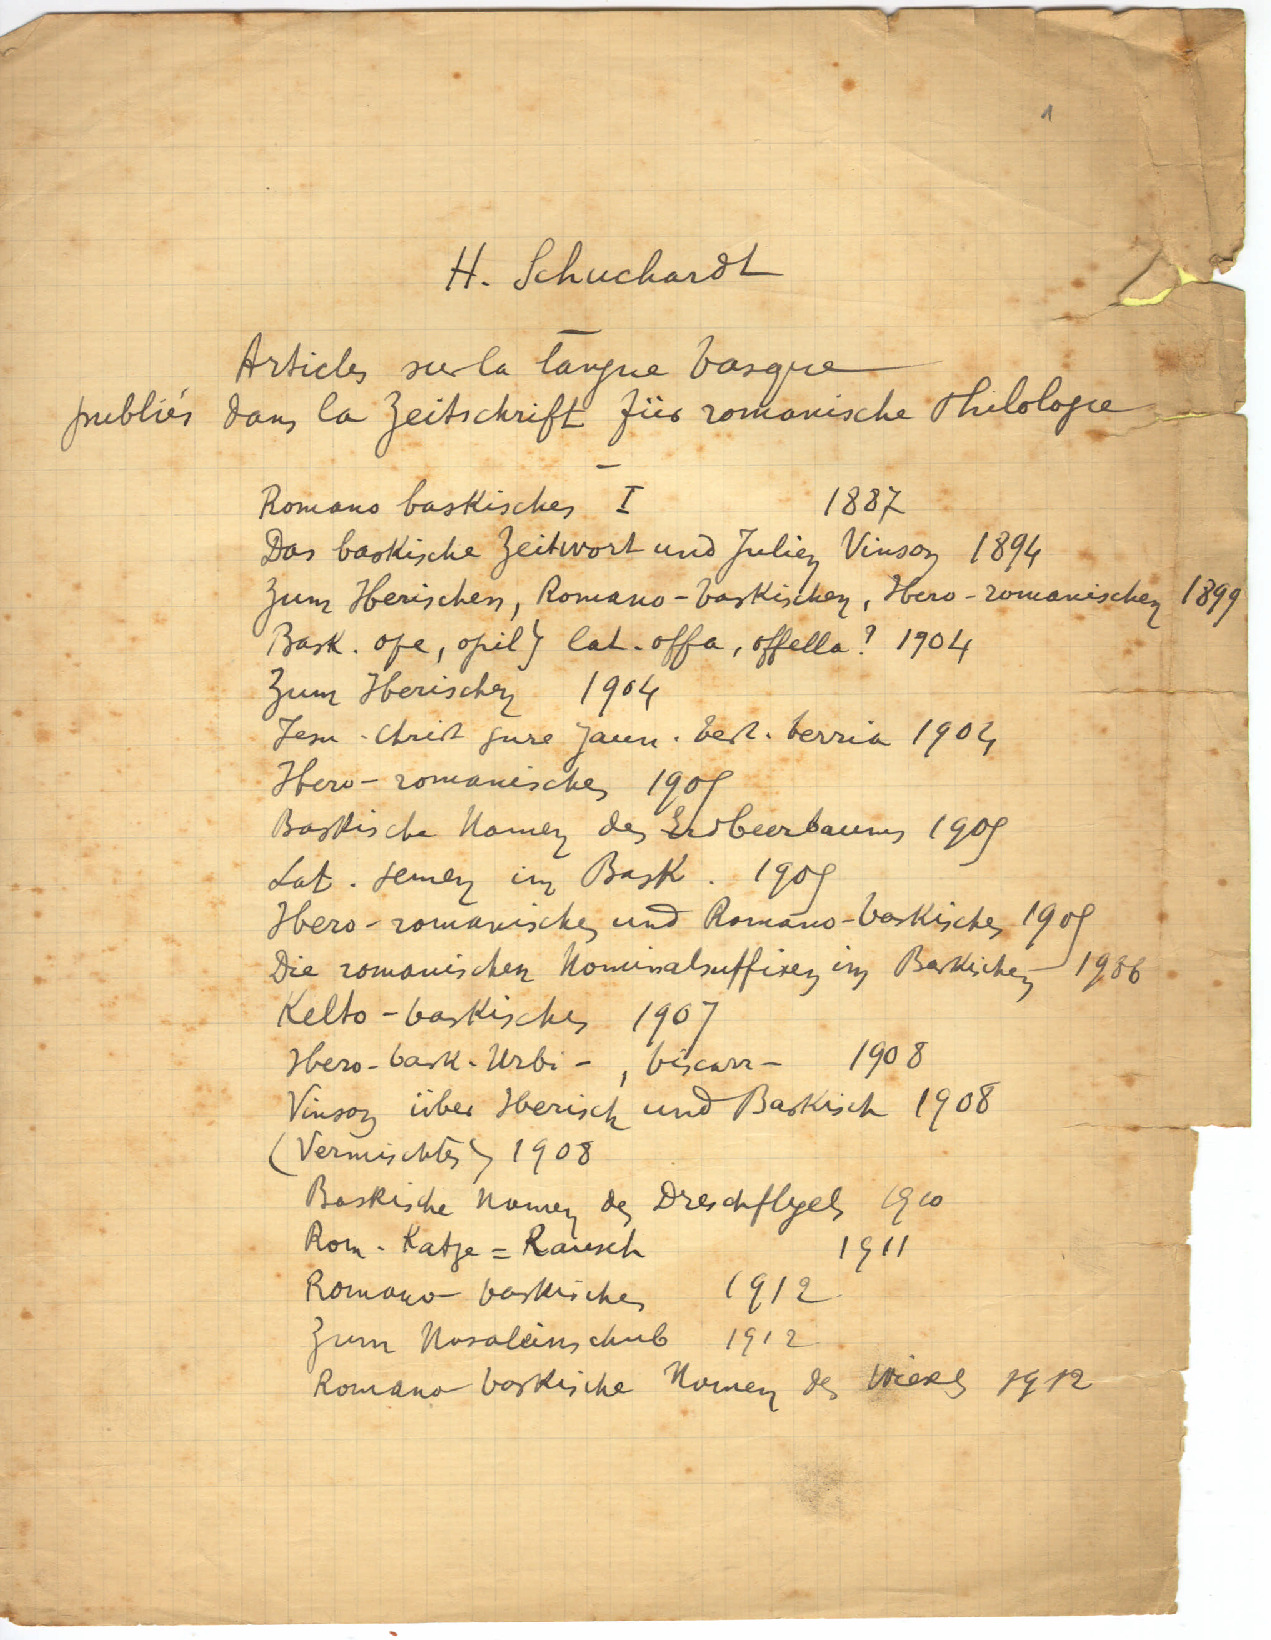 1
H. Schuchardt
Articles sur la langue basque
publiés dans la Zeitschrift für romanische Philologie
Romano baskisches I 1887
Das baskische Zeitwort und Julien Vinson 1894
Zum Iberischen, Romano-baskischen, Ibero-romanischen 1899
Bask. ope, opil } lat. offa, offella? 1904
Zum Iberischen 1904
Jesu-Christ gure Jaun. test. berria 1904
Ibero-romanisches 1905
Baskische Namen des Erdbeerbaums 1905
Lat. semen im Bask. 1905
Ibero-romanisches und Romano-baskisches 1905
Die romanischen Nominalsuffixen im Baskischen 1906
Kelto-baskisches 1907
Ibero-bask. Urbi-, biscarr- 1908
Vinson über Iberisch und Baskisch 1908
(Vermischtes) 1908
Baskische Namen des Dreschflgels 1910
Rom. Katze = Rausch 1911
Romano-baskisches 1912
Zum Nasaleinschub 1912
Romano-baskische Namen des Wiesels 1912